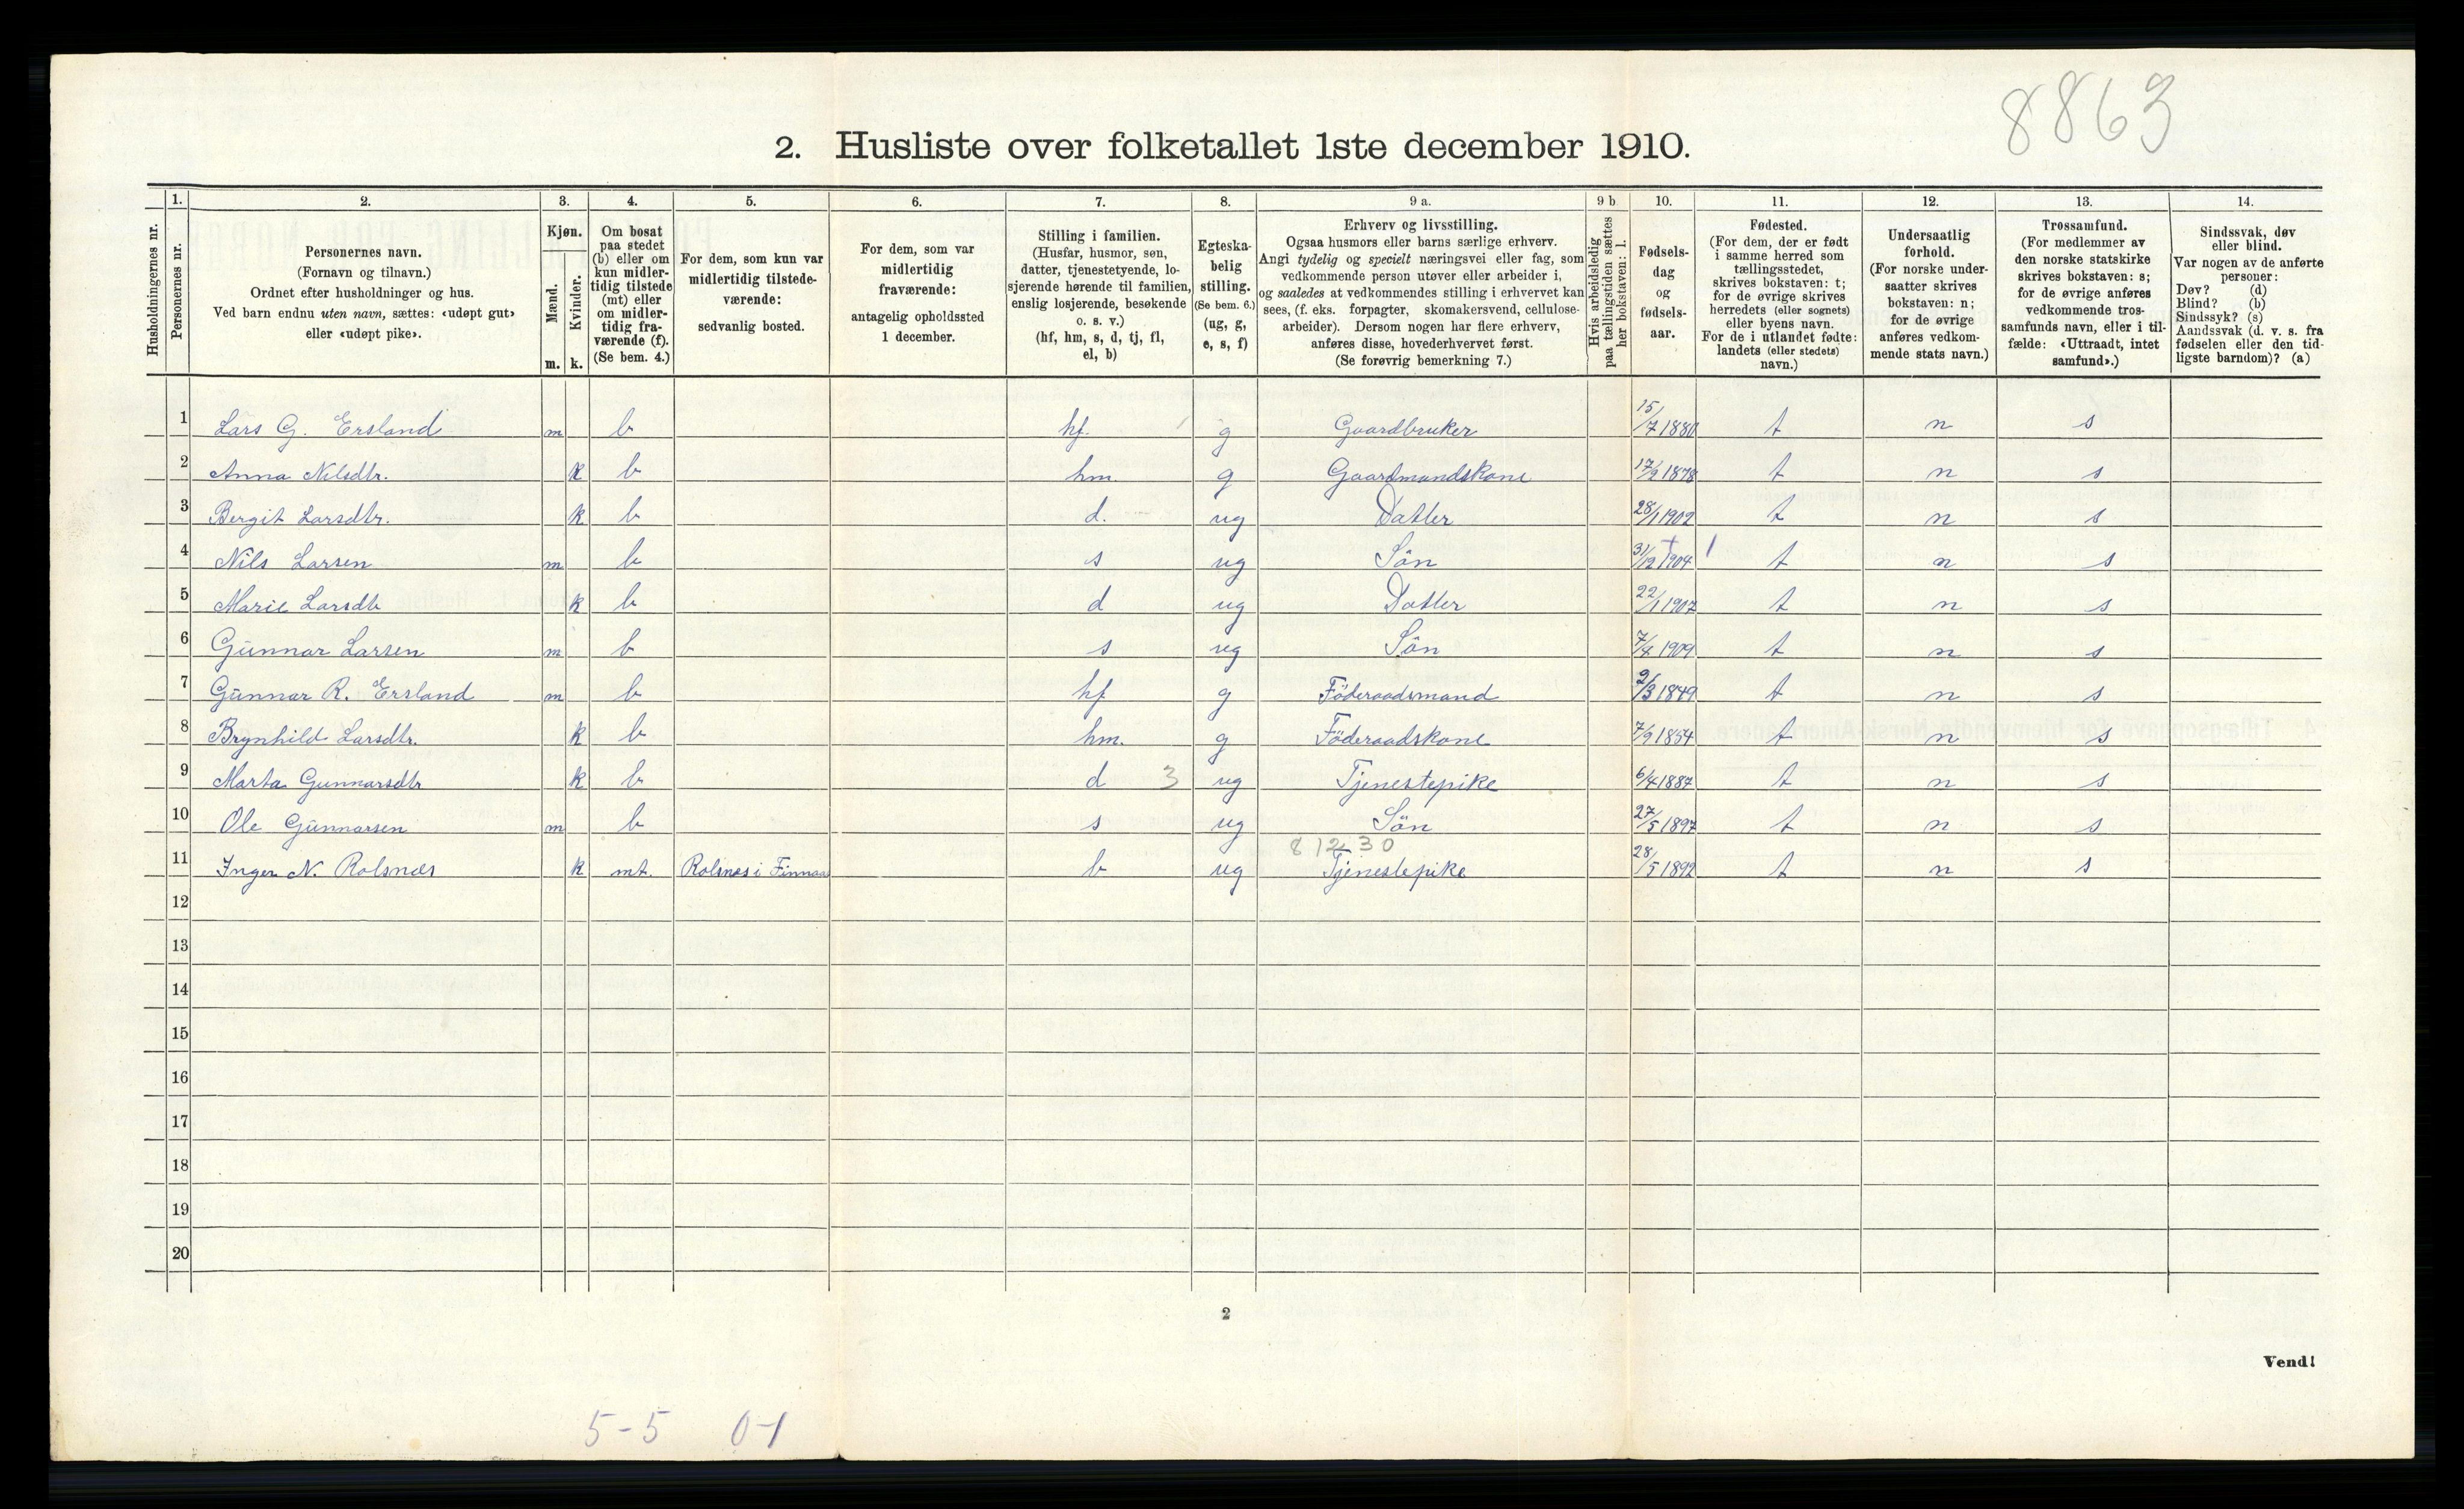 8863
2. Husliste over folketallet 1ste december 1910.
Husholdningernes nr.
1. Personernes nr.
2. Personernes navn. (Fornavn og tilnavn.) Ordnet efter husholdninger og hus. Ved barn endnu uten navn, sættes: «udøpt gut» eller «udøpt pike».
3. Kjøn. Mænd. m. Kvinder. k.
4. Om bosat paa stedet (b) eller om kun midlertidig tilstede (mt) eller om midlertidig fraværende (f). (Se bem. 4.)
5. For dem, som kun var midlertidig tilstedeværende: sedvanlig bosted.
6. For dem, som var midlertidig fraværende: antagelig opholdssted 1 december.
7. Stilling i familien. (Husfar, husmor, søn, datter, tjenestetyende, losjerende hørende til familien, enslig losjerende, besøkende o. s. v.) (hf, hm, s, d, tj, fl, el, b)
8. Egteskabelig stilling. (Se bem. 6.) (ug, g, e, s, f)
9 a. Erhverv og livsstilling. Ogsaa husmors eller barns særlige erhverv. Angi tydelig og specielt næringsvei eller fag, som vedkommende person utøver eller arbeider i, og saaledes at vedkommendes stilling i erhvervet kan sees, (f. eks. forpagter, skomakersvend, cellulosearbeider). Dersom nogen har flere erhverv, anføres disse, hovederhvervet først. (Se forøvrig bemerkning 7.)
9 b Hvis arbeidsledig paa tællingstiden sættes her bokstaven: l.
10. Fødselsdag og fødselsaar.
11. Fødested. (For dem, der er født i samme herred som tællingsstedet, skrives bokstaven: t; for de øvrige skrives herredets (eller sognets) eller byens navn. For de i utlandet fødte: landets (eller stedets) navn.)
12. Undersaatlig forhold. (For norske undersaatter skrives bokstaven: n; for de øvrige anføres vedkommende stats navn.)
13. Trossamfund. (For medlemmer av den norske statskirke skrives bokstaven: s; for de øvrige anføres vedkommende trossamfunds navn, eller i tilfælde: «Uttraadt, intet samfund».)
14. Sindssvak, døv eller blind. Var nogen av de anførte personer: Døv? (d) Blind? (b) Sindssyk? (s) Aandssvak (d. v. s. fra fødselen eller den tidligste barndom)? (a)
1 Lars G. Ersland m b hf. g Gaardbruker 15/7 1880 t n s
2 Anna Nilsdtr. k b hm. g Gaardmandskone 17/9 1878 t n s
3 Bergit Larsdtr. k b d. ug Datter 28/1 1902 t n s
4 Nils Larsen m b s ug Sön 31/12 1904 t n s
5 Marie Larsdtr k b d ug Datter 22/1 1907 t n s
6 Gunnar Larsen m b s ug Sön 7/4 1909 t n s
7 Gunnar R. Ersland m b hf g Föderaadsmand 2/3 1849 t n s
8 Brynhild Larsdtr. k b hm. g Föderaadskone 7/9 1854 t n s
9 Marta Gunnarsdtr k b d 3 ug Tjenestepike 6/4 1887 t n s
10 Ole Gunnarsen m b s ug Sön 27/5 1897 t n s
8 12 30
11 Inger N. Rolsnæs k mt. Rolsnes i Finnaas b ug Tjenestepike 28/5 1892 t n s
12
13
14
15
16
17
18
19
20
2
Vend!
5-5 0-1